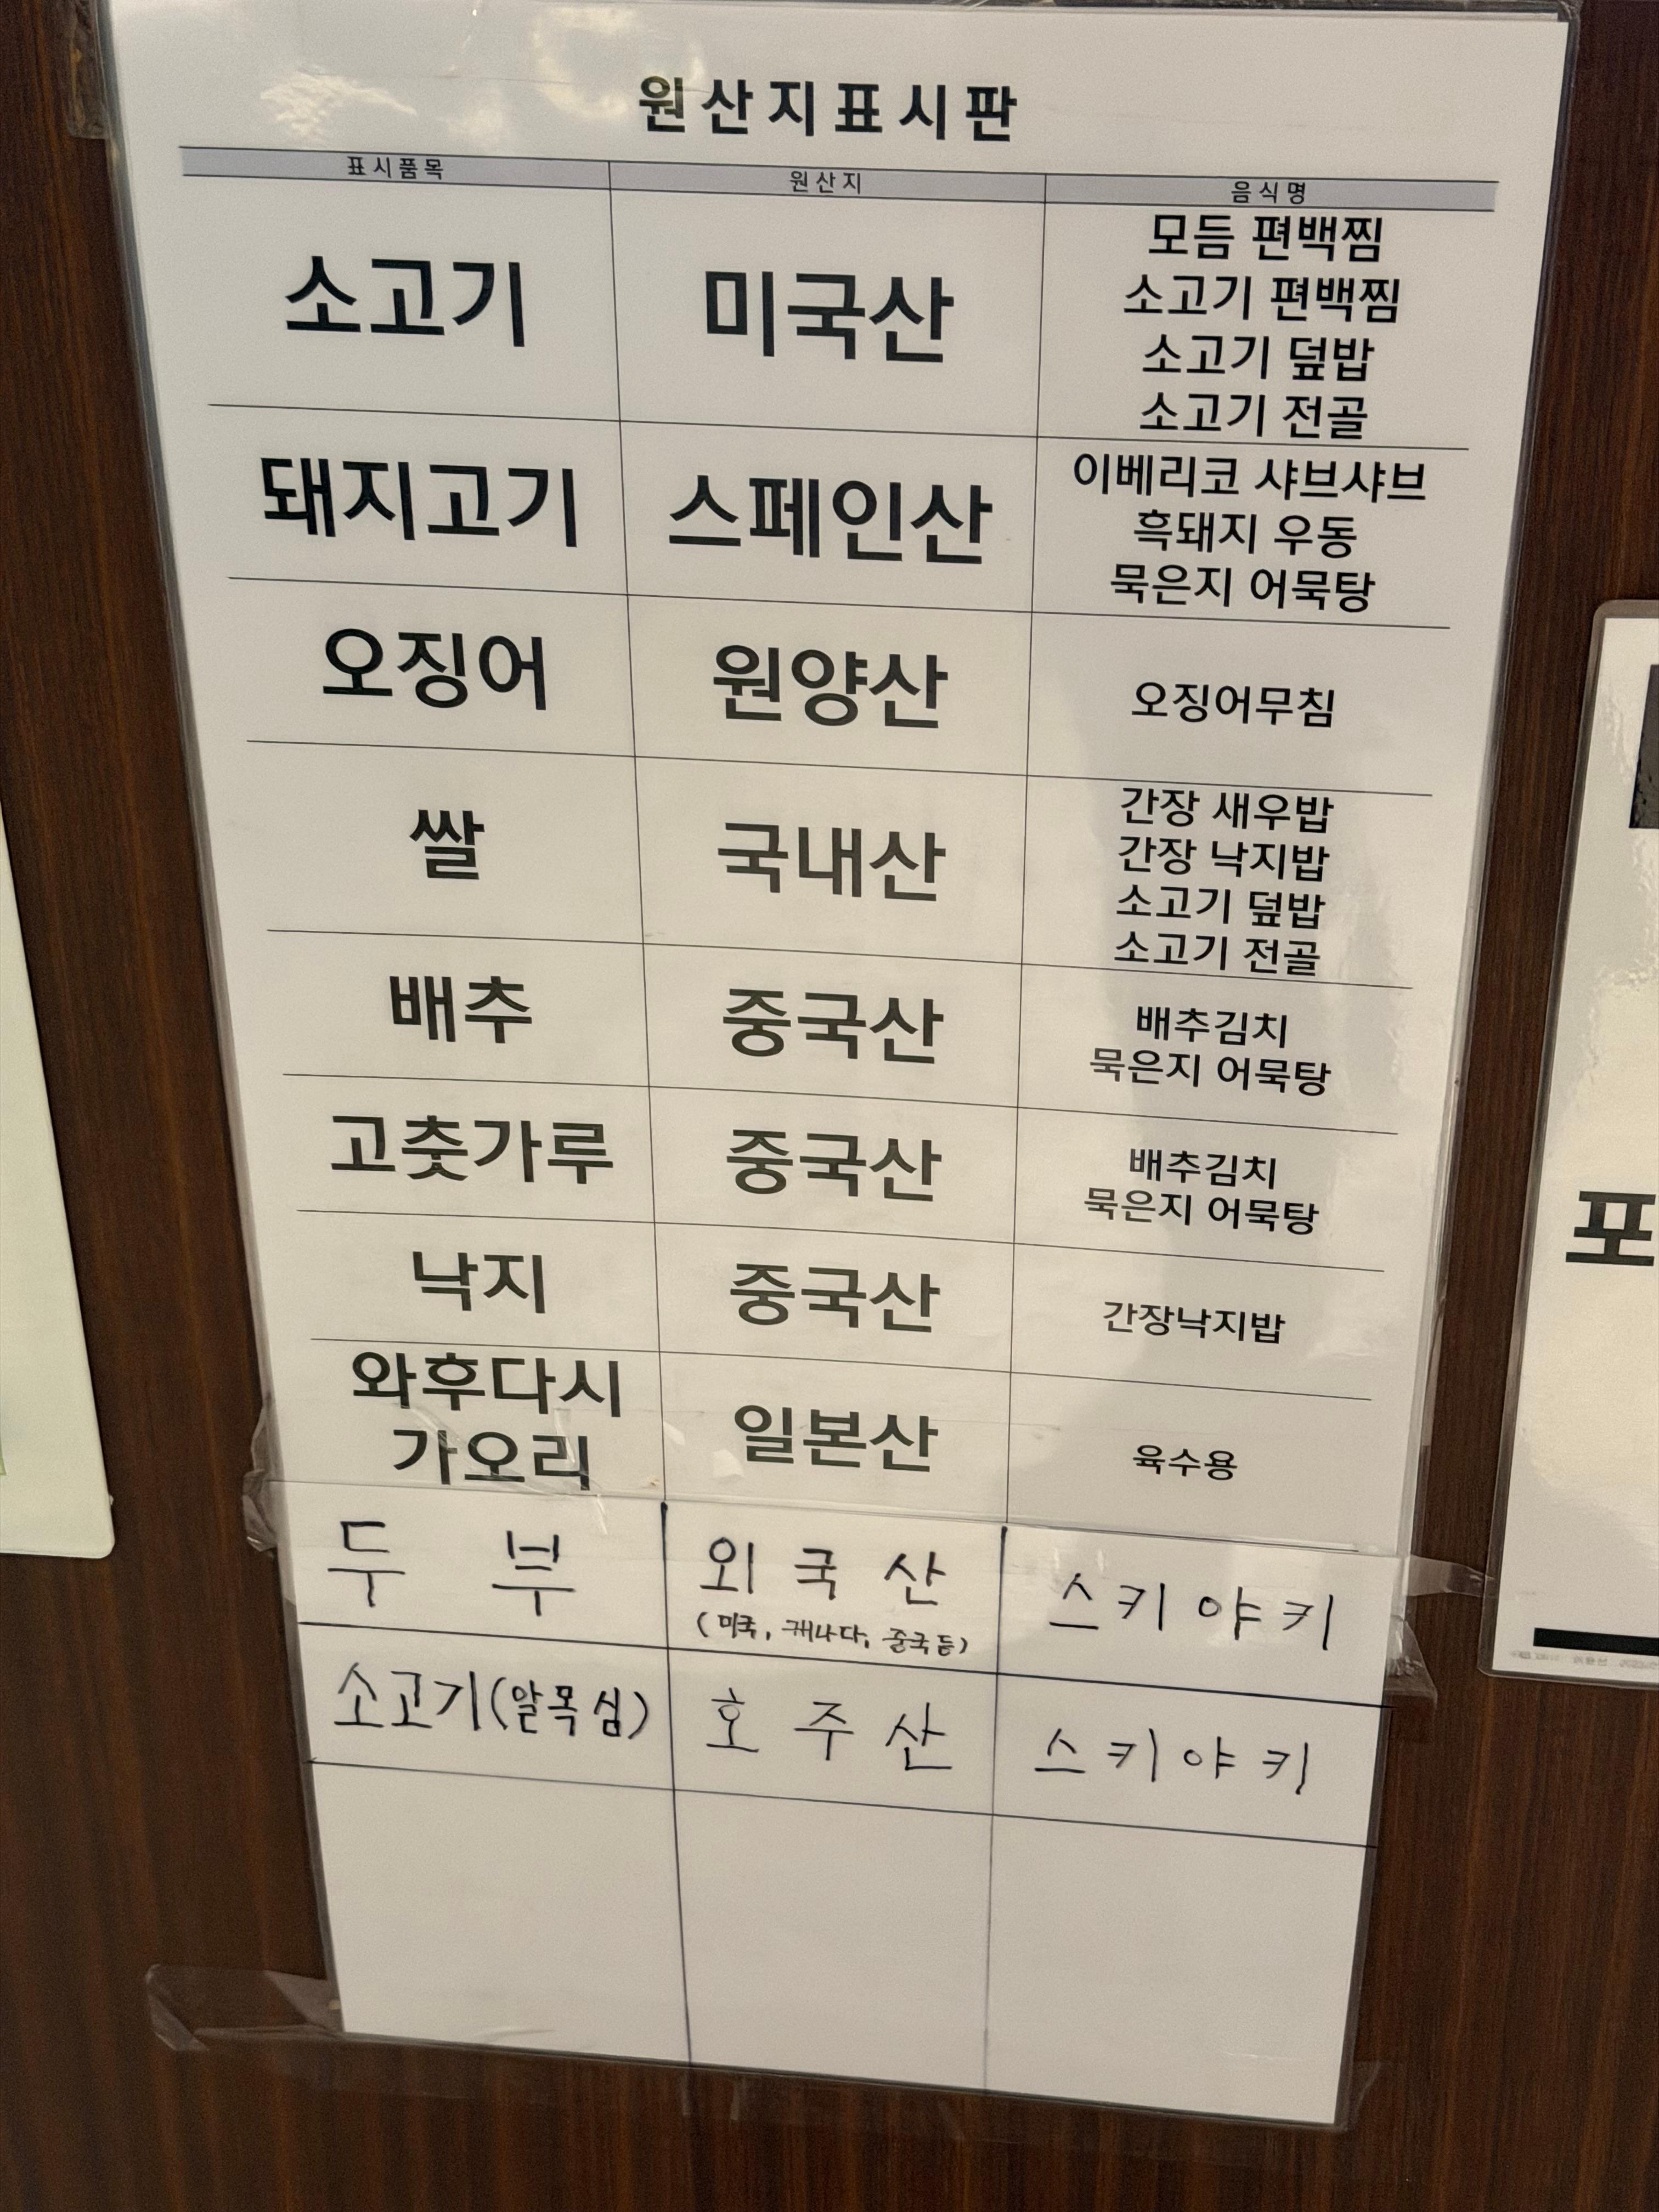 원산지표시판
표시품목 원산지 음식명
소고기 미국산
모듬 편백찜
소고기 편백찜
소고기 덮밥
소고기 전골
돼지고기 스페인산
이베리코 샤브샤브
흑돼지 우동
묵은지 어묵탕
오징어 원양산 오징어무침
쌀 국내산
간장 새우밥
간장 낙지밥
소고기 덮밥
소고기 전골
배추 중국산
배추김치
묵은지 어묵탕
고춧가루 중국산
배추김치
묵은지 어묵탕
낙지 중국산 간장낙지밥
와후다시
가오리
일본산 육수용
두부 외국산 스키야키
(미국, 캐나다, 중국등)
소고기(알목심) 호주산 스키야키
포